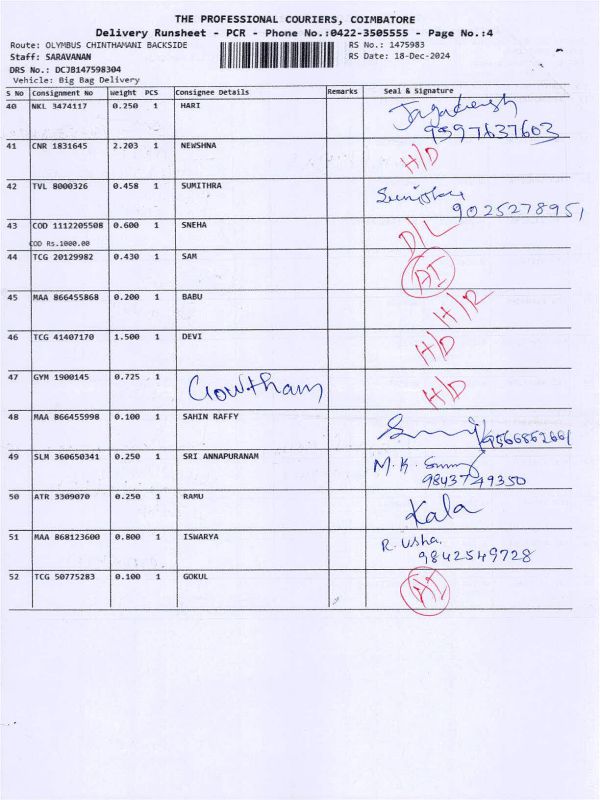 THE PROFESSIONAL COURIERS, COIMBATORE
Delivery Runsheet - PCR - Phone No.:0422-3505555 - Page No.:4
Route: OLYMBUS CHINTHAMANI BACKSIDE RS No.: 1475983
Staff: SARAVANAN RS Date: 18-Dec-2024
DRS No.: DCJB147598304
Vehicle: Big Bag Delivery
S No Consignment No Weight PCS Consignee Details Remarks Seal & Signature
40 NKL 3474117 0.250 1 HARI
9597637603
41 CNR 1831645 2.203 1 NEWSHNA H/D
42 TVL 8000326 0.458 1 SUMITHRA
9025278951
43 COD 1112205508 0.600 1 SNEHA D/L
COD Rs.1000.00
44 TCG 20129982 0.430 1 SAM AI
45 MAA 866455868 0.200 1 BABU H/R
46 TCG 41407170 1.500 1 DEVI H/D
47 GYM 1900145 0.725 1 Gowtham H/D
48 MAA 866455998 0.100 1 SAHIN RAFFY 9566862661
49 SLM 360650341 0.250 1 SRI ANNAPURANAM M.K.
9843749350
50 ATR 3309070 0.250 1 RAMU Kala
51 MAA 868123600 0.800 1 ISWARYA R. Usha.
9842549728
52 TCG 50775283 0.100 1 GOKUL AI